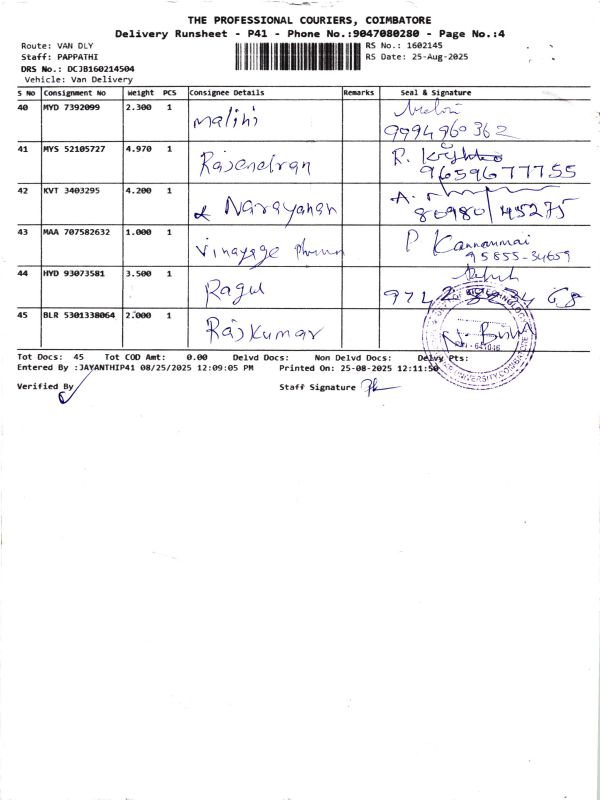 THE PROFESSIONAL COURIERS, COIMBATORE
Delivery Runsheet - P41 - Phone No.:9047080280 - Page No.:4
Route: VAN DLY RS No.: 1602145
Staff: PAPPATHI RS Date: 25-Aug-2025
DRS No.: DCJB160214504
Vehicle: Van Delivery
S No Consignment No Weight PCS Consignee Details Remarks Seal & Signature
40 MYD 7392099 2.300 1 Malini
9994960362
41 MYS 52105727 4.970 1 Rajendran R.
9659677755
42 KVT 3403295 4.200 1 Narayanan A.
80980/45275
43 MAA 707582632 1.000 1 Vinayage P Kannammai
95855-34659
44 HYD 93073581 3.500 1 Ragul
45 BLR 5301338064 2.000 1 Rajkumar
Tot Docs: 45 Tot COD Amt: 0.00 Delvd Docs: Non Delvd Docs: Delvy Pts:
Entered By :JAYANTHIP41 08/25/2025 12:09:05 PM Printed On: 25-08-2025 12:11:50
Verified By Staff Signature